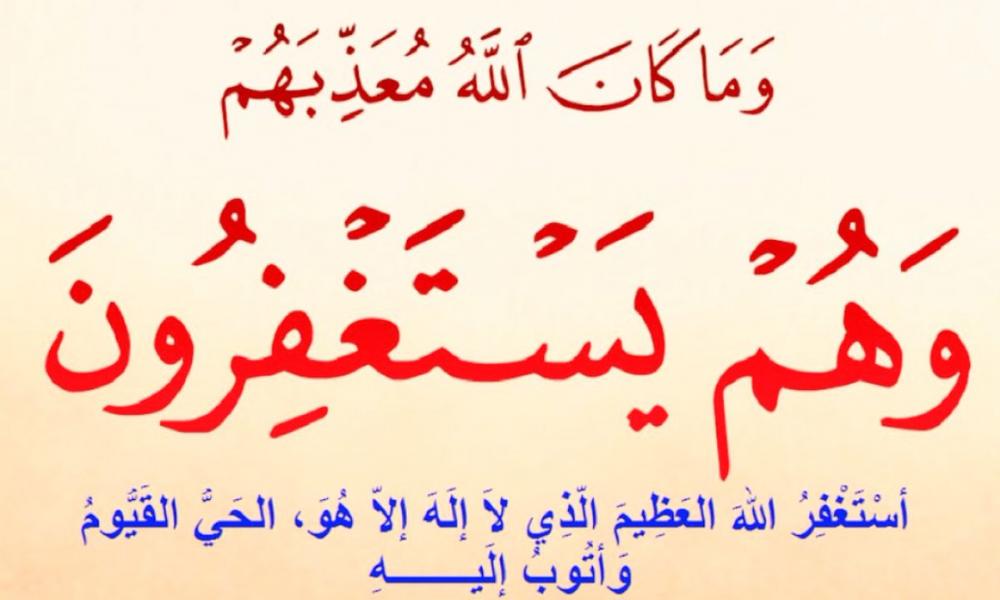 وَمَا كَانَ ٱللَّهُ مُعَذِّبَهُمْ
وَهُمْ يَسْتَغْفِرُونَ
أسْتَغْفِرُ اللهَ العَظِيمَ الّذِي لاَ إلَهَ إلاّ هُوَ، الحَيُّ القَيُّومُ
وَأتُوبُ إلَيـــــهِ